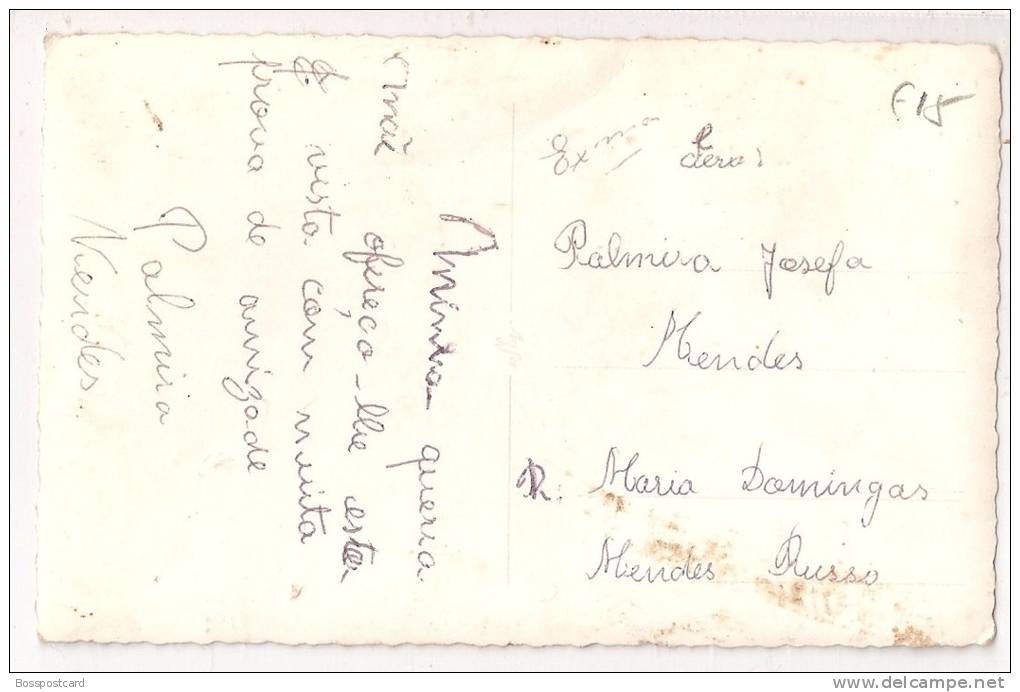 Minha queria
Mãe ofereço-lhe este
f. vista com muita
prova de amizade
Palmira
Mendes..
E15
Exma Sera:
Palmira Josefa
Mendes
R. Maria Domingas
Mendes Russo
Bosspostcard
delcampe.net